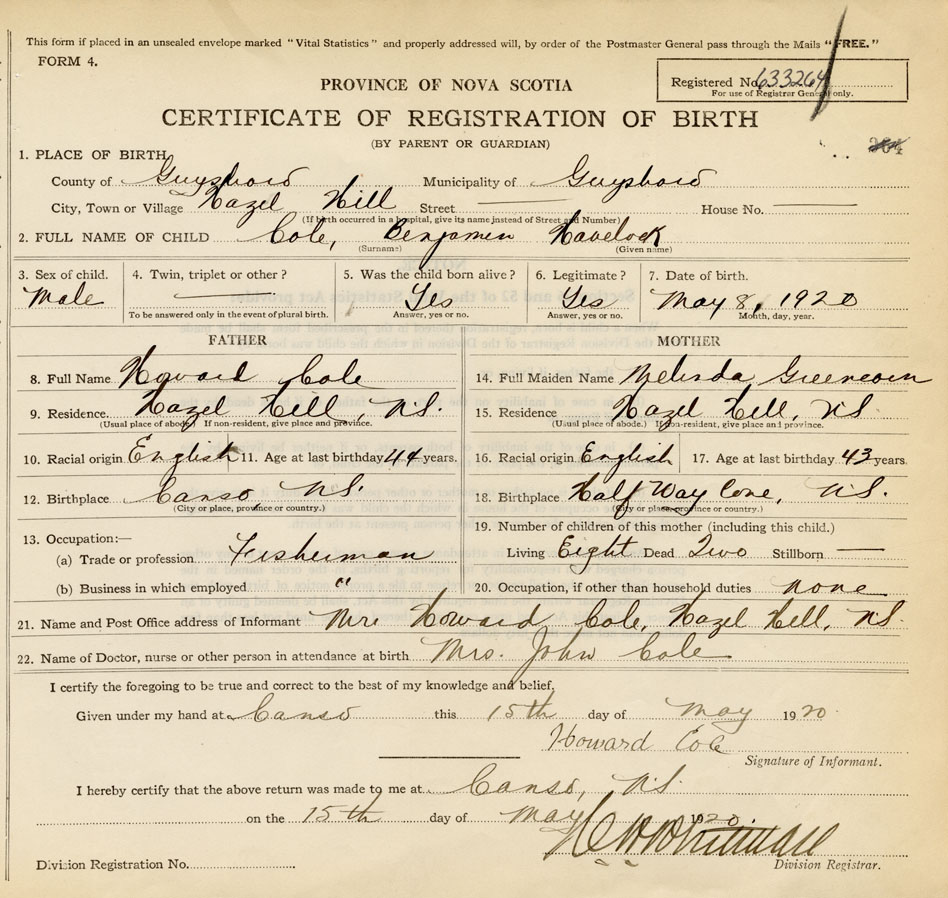 This form if placed in an unsealed envelope marked "Vital Statistics" and properly addressed will, by order of the Postmaster General pass through the Mails "FREE."
FORM 4.
Registered No. 633264
For use of Registrar General only.
PROVINCE OF NOVA SCOTIA
CERTIFICATE OF REGISTRATION OF BIRTH
(BY PARENT OR GUARDIAN)
1. PLACE OF BIRTH
County of Guysboro Municipality of Guysboro
City, Town or Village Hazel Hill Street — House No. —
(If birth occurred in a hospital, give its name instead of Street and Number)
2. FULL NAME OF CHILD Cole, Benjamin Havelock
(Surname) (Given name)
3. Sex of child. 4. Twin, triplet or other? 5. Was the child born alive? 6. Legitimate? 7. Date of birth.
Male — Yes Yes May 8, 1920
To be answered only in the event of plural birth. Answer, yes or no. Answer, yes or no. Month, day, year.
FATHER
8. Full Name Howard Cole
9. Residence. Hazel Hill, N.S.
(Usual place of abode.) If non-resident, give place and province.
10. Racial origin English 11. Age at last birthday 44 years.
12. Birthplace Canso N.S.
(City or place, province or country.)
13. Occupation:—
(a) Trade or profession Fisherman
(b) Business in which employed "
MOTHER
14. Full Maiden Name Melinda Greencorn
15. Residence Hazel Hill, N.S.
(Usual place of abode.) If non-resident, give place and province.
16. Racial origin English 17. Age at last birthday 43 years.
18. Birthplace Half Way Cove, N.S.
(City or place, province or country.)
19. Number of children of this mother (including this child.)
Living Eight Dead Two Stillborn —
20. Occupation, if other than household duties none
21. Name and Post Office address of Informant Mrs Howard Cole, Hazel Hill, N.S.
22. Name of Doctor, nurse or other person in attendance at birth Mrs. John Cole
I certify the foregoing to be true and correct to the best of my knowledge and belief.
Given under my hand at Canso this 15th day of May 1920
Howard Cole
Signature of Informant.
I hereby certify that the above return was made to me at Canso, N.S.
on the 15th day of May 1920.
Division Registration No.
Division Registrar.